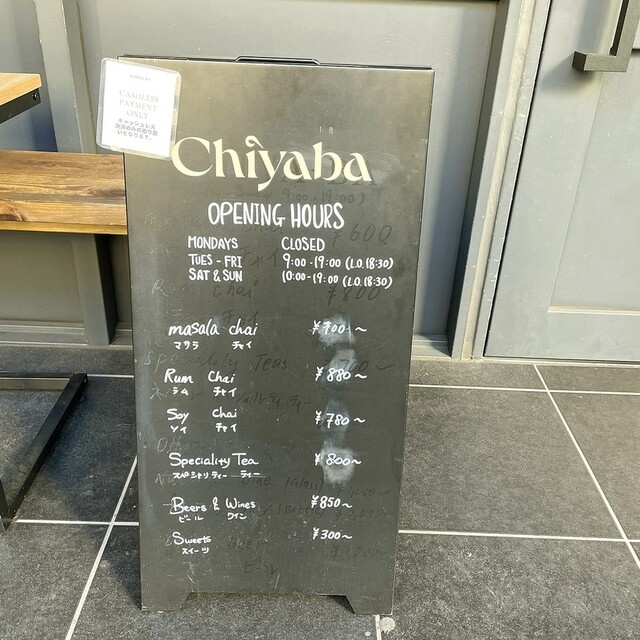 CASHLESS
PAYMENT
ONLY
キャッシュレス
決済のみの取り扱
いとなります。
Chiyaba
OPENING HOURS
MONDAYS CLOSED
TUES - FRI 9:00-19:00 (L.O.18:30)
SAT & SUN 10:00-19:00 (L.O.18:30)
masala chai ¥700~
マサラ チャイ
Rum Chai ¥880~
ラム チャイ
Soy Chai ¥780~
ソイ チャイ
Speciality Tea ¥800~
スペシャリティー ティー
Beers & Wines ¥850~
ビール ワイン
Sweets ¥300~
スイーツ